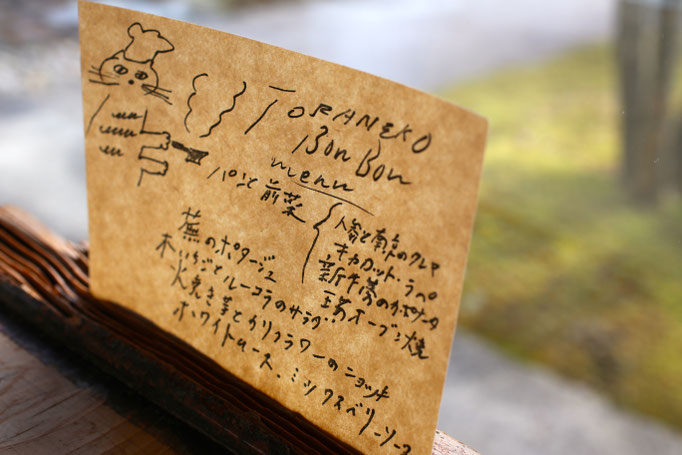 TORANEKO
BonBon
menu
パンと前菜
人参と南京のクレマ
キャロット・ラペ
新牛蒡のカポナータ
玉葱オーブン焼
蕪のポタージュ
木いちごとルーコラのサラダ
火焼き芋とカリフラワーのニョッキ
ホワイトムース、ミックスベリーソース